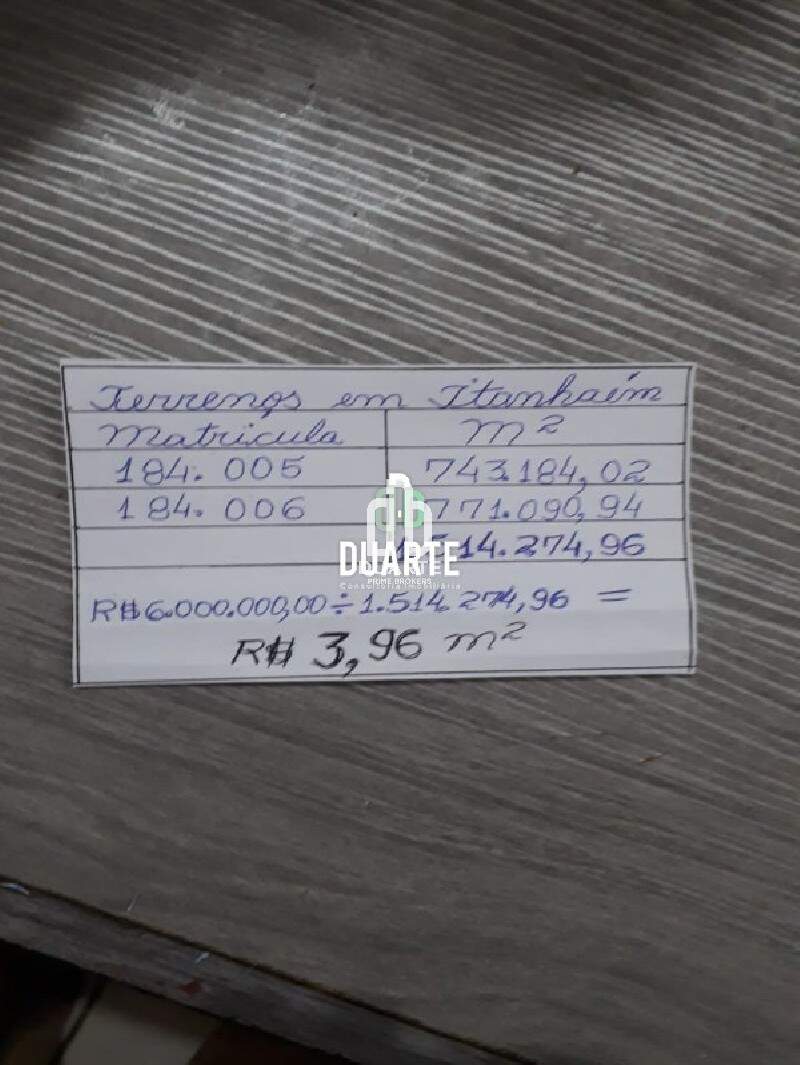 Terrenos em Itanhaém
Matricula m²
184.005 743.184,02
184.006 771.090,94
1.514.274,96
DUARTE
PRIME BROKERS
Consultoria Imobiliária
R$6.000.000,00÷1.514.274,96 =
R$ 3,96 m²